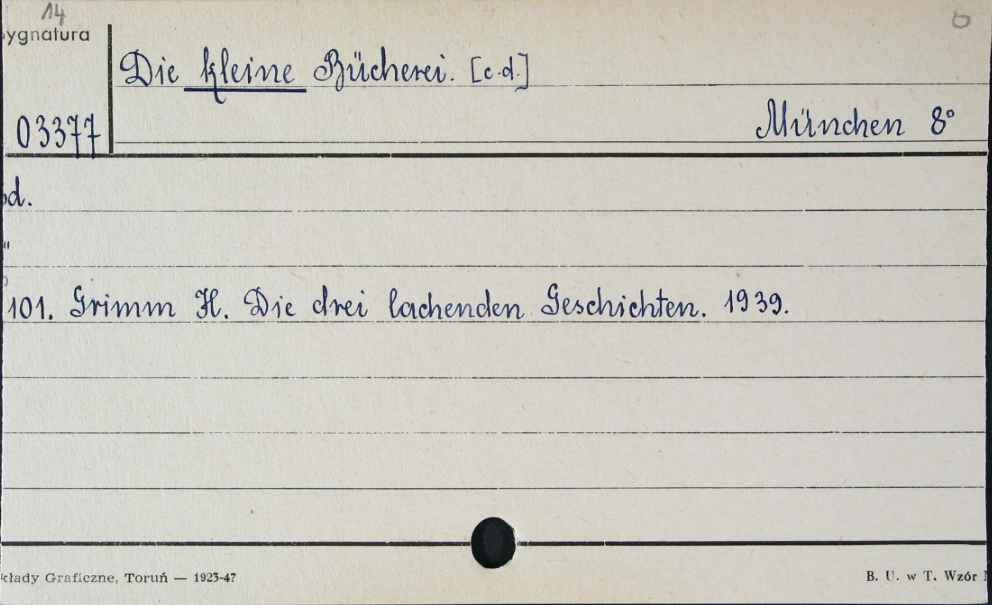 14
ygnatura
Die kleine Bücherei. [c.d.]
03377
München 8°
od.
"
101. Grimm H. Die drei lachenden Geschichten. 1939.
kłady Graficzne, Toruń — 1923-47
B. U. w T. Wzór